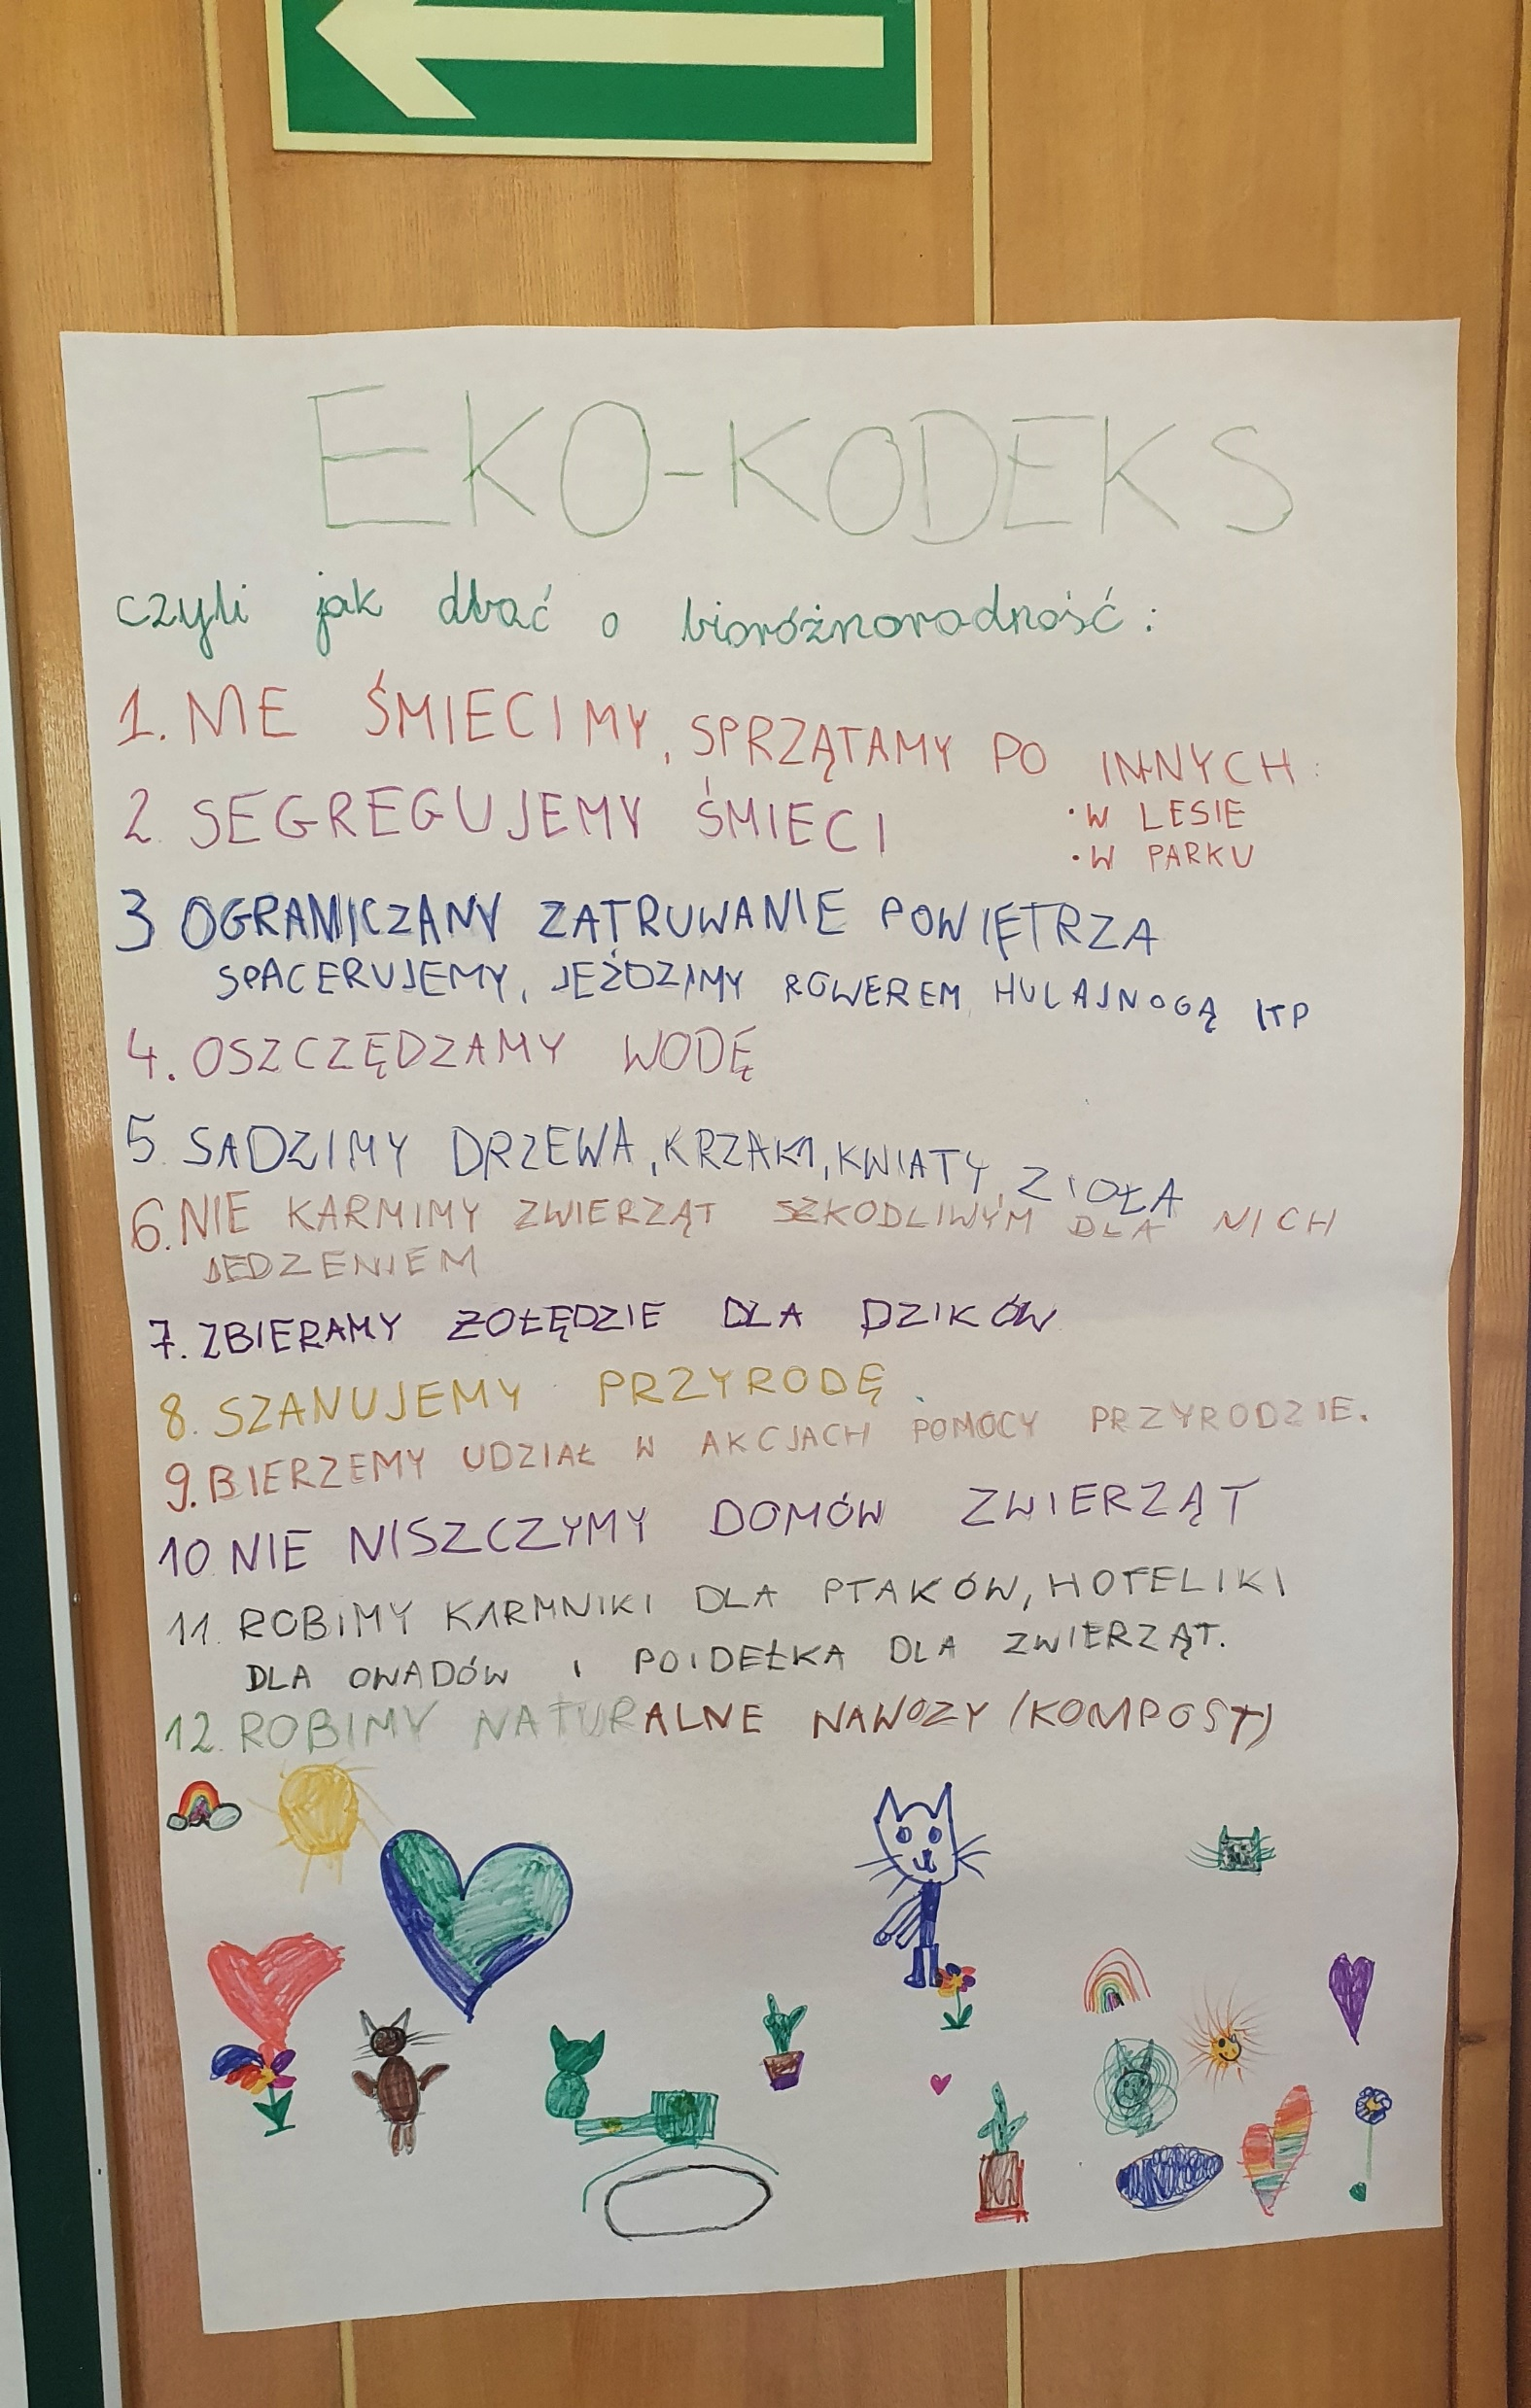 EKO-KODEKS
czyli jak dbać o bioróżnorodność:
1. NIE ŚMIECIMY, SPRZĄTAMY PO INNYCH:
• W LESIE
• W PARKU
2. SEGREGUJEMY ŚMIECI
3 OGRANICZAMY ZATRUWANIE POWIĘTRZA
SPACERUJEMY, JEŹDZIMY ROWEREM, HULAJNOGĄ ITP
4. OSZCZĘDZAMY WODĘ
5. SADZIMY DRZEWA, KRZAKI, KWIATY, ZIOŁA
6. NIE KARMIMY ZWIERZĄT SZKODLIWYM DLA NICH
JEDZENIEM
7. ZBIERAMY ŻOŁĘDZIE DLA DZIKÓW
8. SZANUJEMY PRZYRODĘ
9. BIERZEMY UDZIAŁ W AKCJACH POMOCY PRZYRODZIE.
10 NIE NISZCZYMY DOMÓW ZWIERZĄT
11. ROBIMY KARMNIKI DLA PTAKÓW, HOTELIKI
DLA OWADÓW I POIDEŁKA DLA ZWIERZĄT.
12. ROBIMY NATURALNE NAWOZY (KOMPOST)